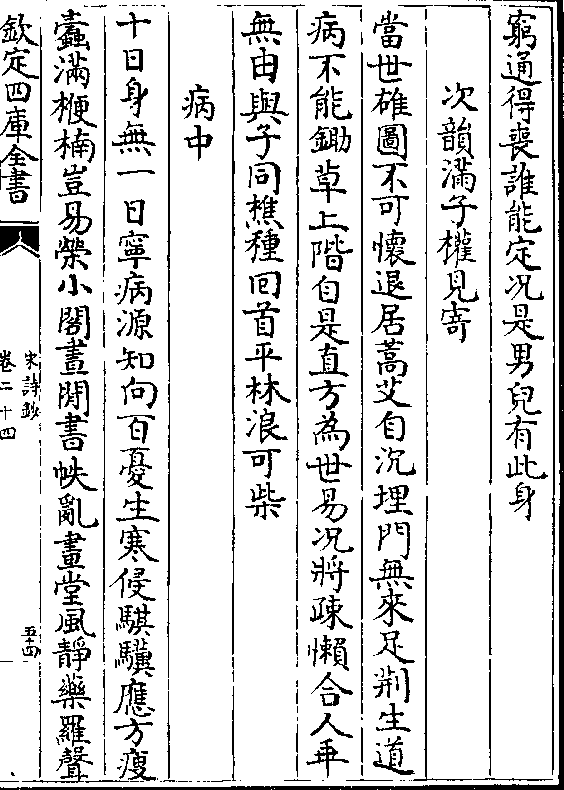 窮通得喪誰能定况是男兒有此身
次韻滿子權見寄
當世雄圖不可懷退居蒿艾自沉埋門無來足荆生道
病不能鋤草上階自是直方為世易况將疎懶合人乖
無由與子同樵種回首平林浪可柴
病中
十日身無一日寧病源知向百憂生寒侵騏驥應方瘦
蠧滿楩楠豈易榮小閣晝閒書帙亂畫堂風靜藥羅聲
欽定四庫全書
宋詩鈔
卷二十四
五十四